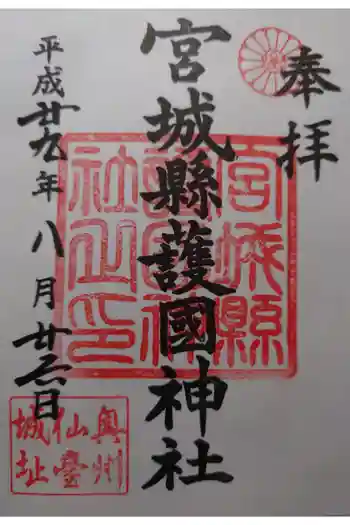 奉拝
宮城縣護國神社
宮城縣護國神社之印
平成廿九年八月廿六日
奥州
仙臺
城址